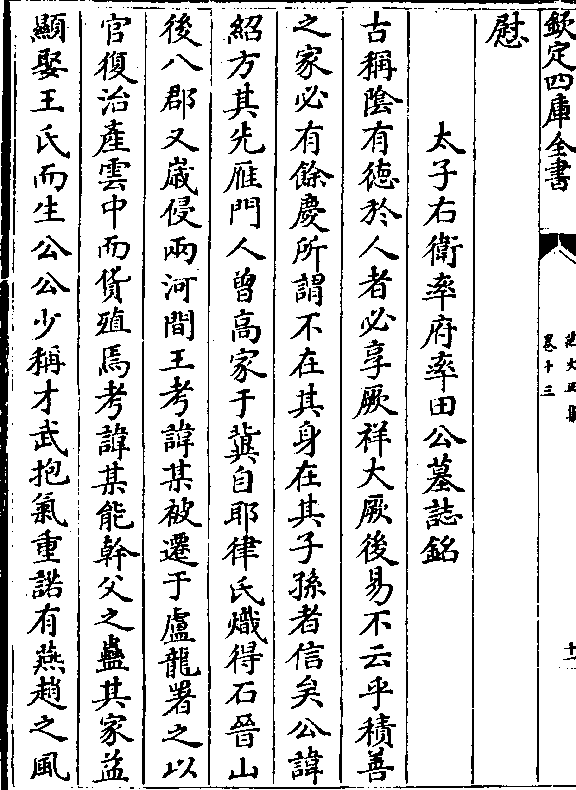 欽定四庫全書
卷十三
十一
慰
太子右衛率府率田公墓誌銘
古稱陰有徳於人者必享厥祥大厥後易不云乎積善
之家必有餘慶所謂不在其身在其子孫者信矣公諱
紹方其先雁門人曾高家于冀自耶律氏熾得石晉山
後八郡又嵗侵兩河間王考諱某被遷于盧龍署之以
官復治產雲中而貨殖焉考諱某能幹父之蠱其家益
顯娶王氏而生公公少稱才武抱氣重諾有燕趙之風